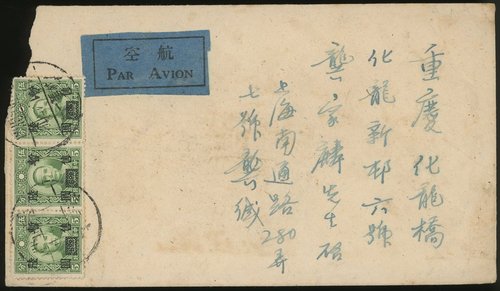 重慶 化龍橋
化龍新邨六號
龔家麟先生啓
上海南通路280弄
七號龔緘
空航
PAR AVION